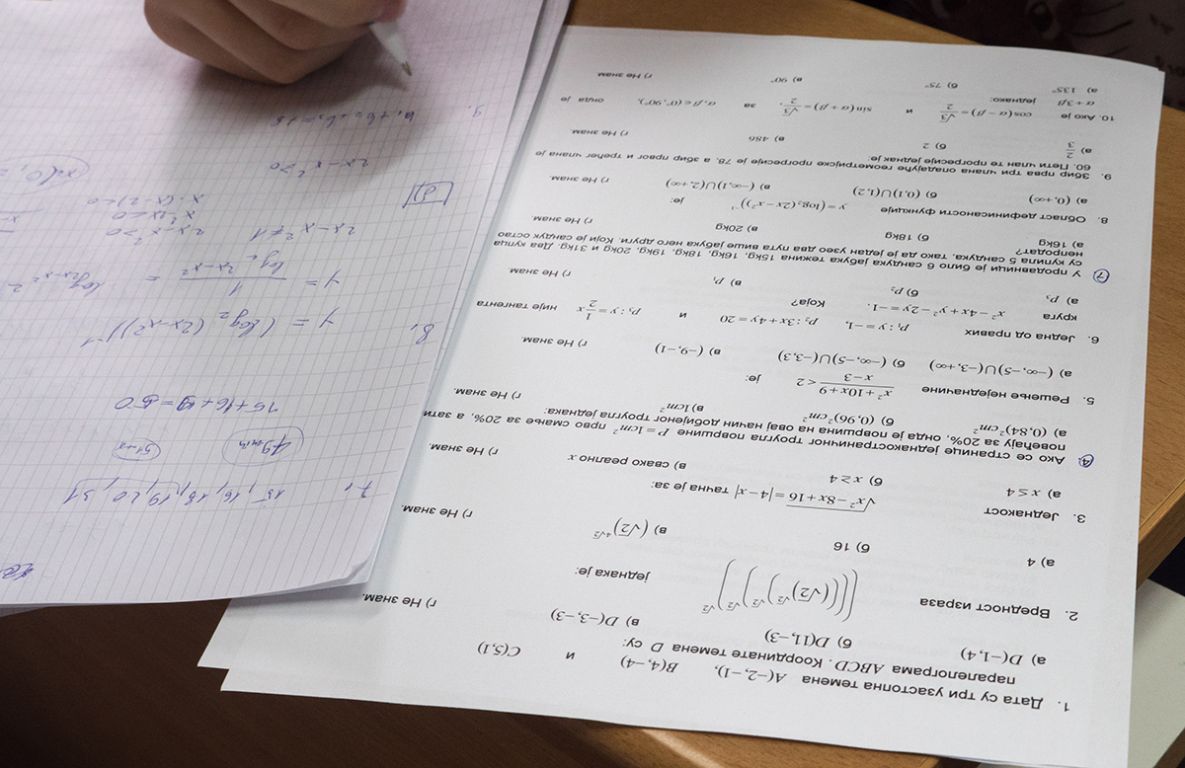 1. Дата су три узастопна темена A(−2,−1), B(4,−4) и C(5,1)
паралелограма ABCD. Координате темена D су:
а) D(−1,4) б) D(11,−3) в) D(−3,−3) г) Не знам.
2. Вредност израза ((((√2)^√2)^√2)^√2)^√2 једнака је:
а) 4 б) 16 в) (√2)^4√2 г) Не знам.
3. Једнакост √x²−8x+16 = |4−x| тачна је за:
а) x ≤ 4 б) x ≥ 4 в) свако реално x г) Не знам.
4. Ако се странице једнакостраничног троугла површине P=1cm² прво смање за 20%, а зати
повећају за 20%, онда је површина на овај начин добијеног троугла једнака:
а) (0,84)² cm² б) (0,96)² cm² в) 1cm² г) Не знам.
5. Решење неједначине x²+10x+9 / x−3 < 2 је:
а) (−∞,−5)∪(−3,+∞) б) (−∞,−5)∪(−3,3) в) (−9,−1) г) Не знам.
6. Једна од правих p₁: y=−1, p₂: 3x+4y=20 и p₃: y=1/2 x није тангента
круга x²−4x+y²−2y=−1. Која?
а) p₃ б) p₂ в) p₁ г) Не знам.
7. У продавници је било 6 сандука јабука тежина 15kg, 16kg, 18kg, 19kg, 20kg и 31kg. Два купца
су купила 5 сандука, тако да је један узео два пута више јабука него други. Који је сандук остао
непродат?
а) 16kg б) 18kg в) 20kg г) Не знам.
8. Област дефинисаности функције y=(log₂(2x−x²))⁻¹ је:
а) (0,+∞) б) (0,1)∪(1,2) в) (−∞,1)∪(2,+∞) г) Не знам.
9. Збир прва три члана опадајуће геометријске прогресије је 78, а збир првог и трећег члана је
60. Пети члан те прогресије једнак је:
а) 2/3 б) 2 в) 486 г) Не знам.
10. Ако је cos(α−β)=√3/2 и sin(α+β)=√3/2, за α,β∈(0°,90°), онда је
α+3β једнако:
а) 135° б) 75° в) 90° г) Не знам
7. 15, 16, 18, 19, 20, 31
15+16+19=50
8. y = (log₂(2x−x²))⁻¹
y = 1 / log₂ 2x−x² =
2x−x² ≠ 1 2x−x² > 0
x²−2x < 0
x·(x−2) < 0
2x−x² > 0
9.